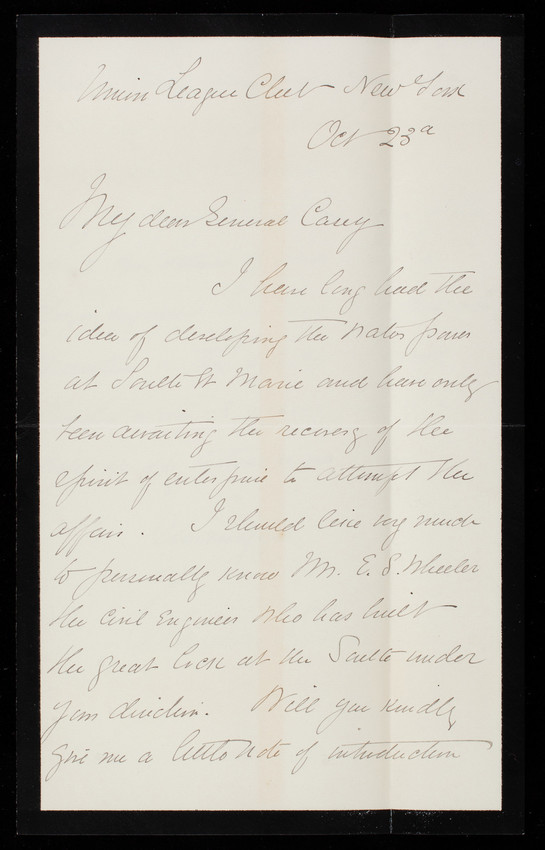 Union League Club New York
Oct 23d
My dear General Casey
I have long had the
idea of developing the water power
at Sault St Marie and have only
been awaiting the recovery of the
spirit of enterprise to attempt the
affair. I should like very much
to personally know Mr. E. S. Wheeler
the Civil Engineer who has built
the great lock at the Sault under
your direction. Will you kindly
give me a little note of introduction